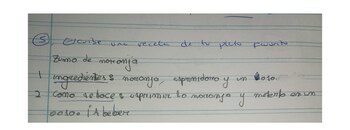 5. escribe una receta de tu plato favorito
Zumo de naranja
1 ingredientes naranja, esprimidora y un vaso.
2 Como se hace s esprimir la naranja y meterlo en un
vaso. ¡A beber